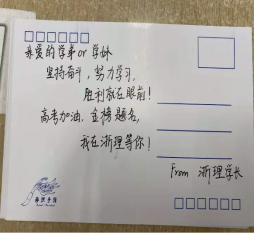 亲爱的学弟or学妹
坚持奋斗，努力学习，
胜利就在眼前！
高考加油，金榜题名，
我在浙理等你！
From 浙理学长